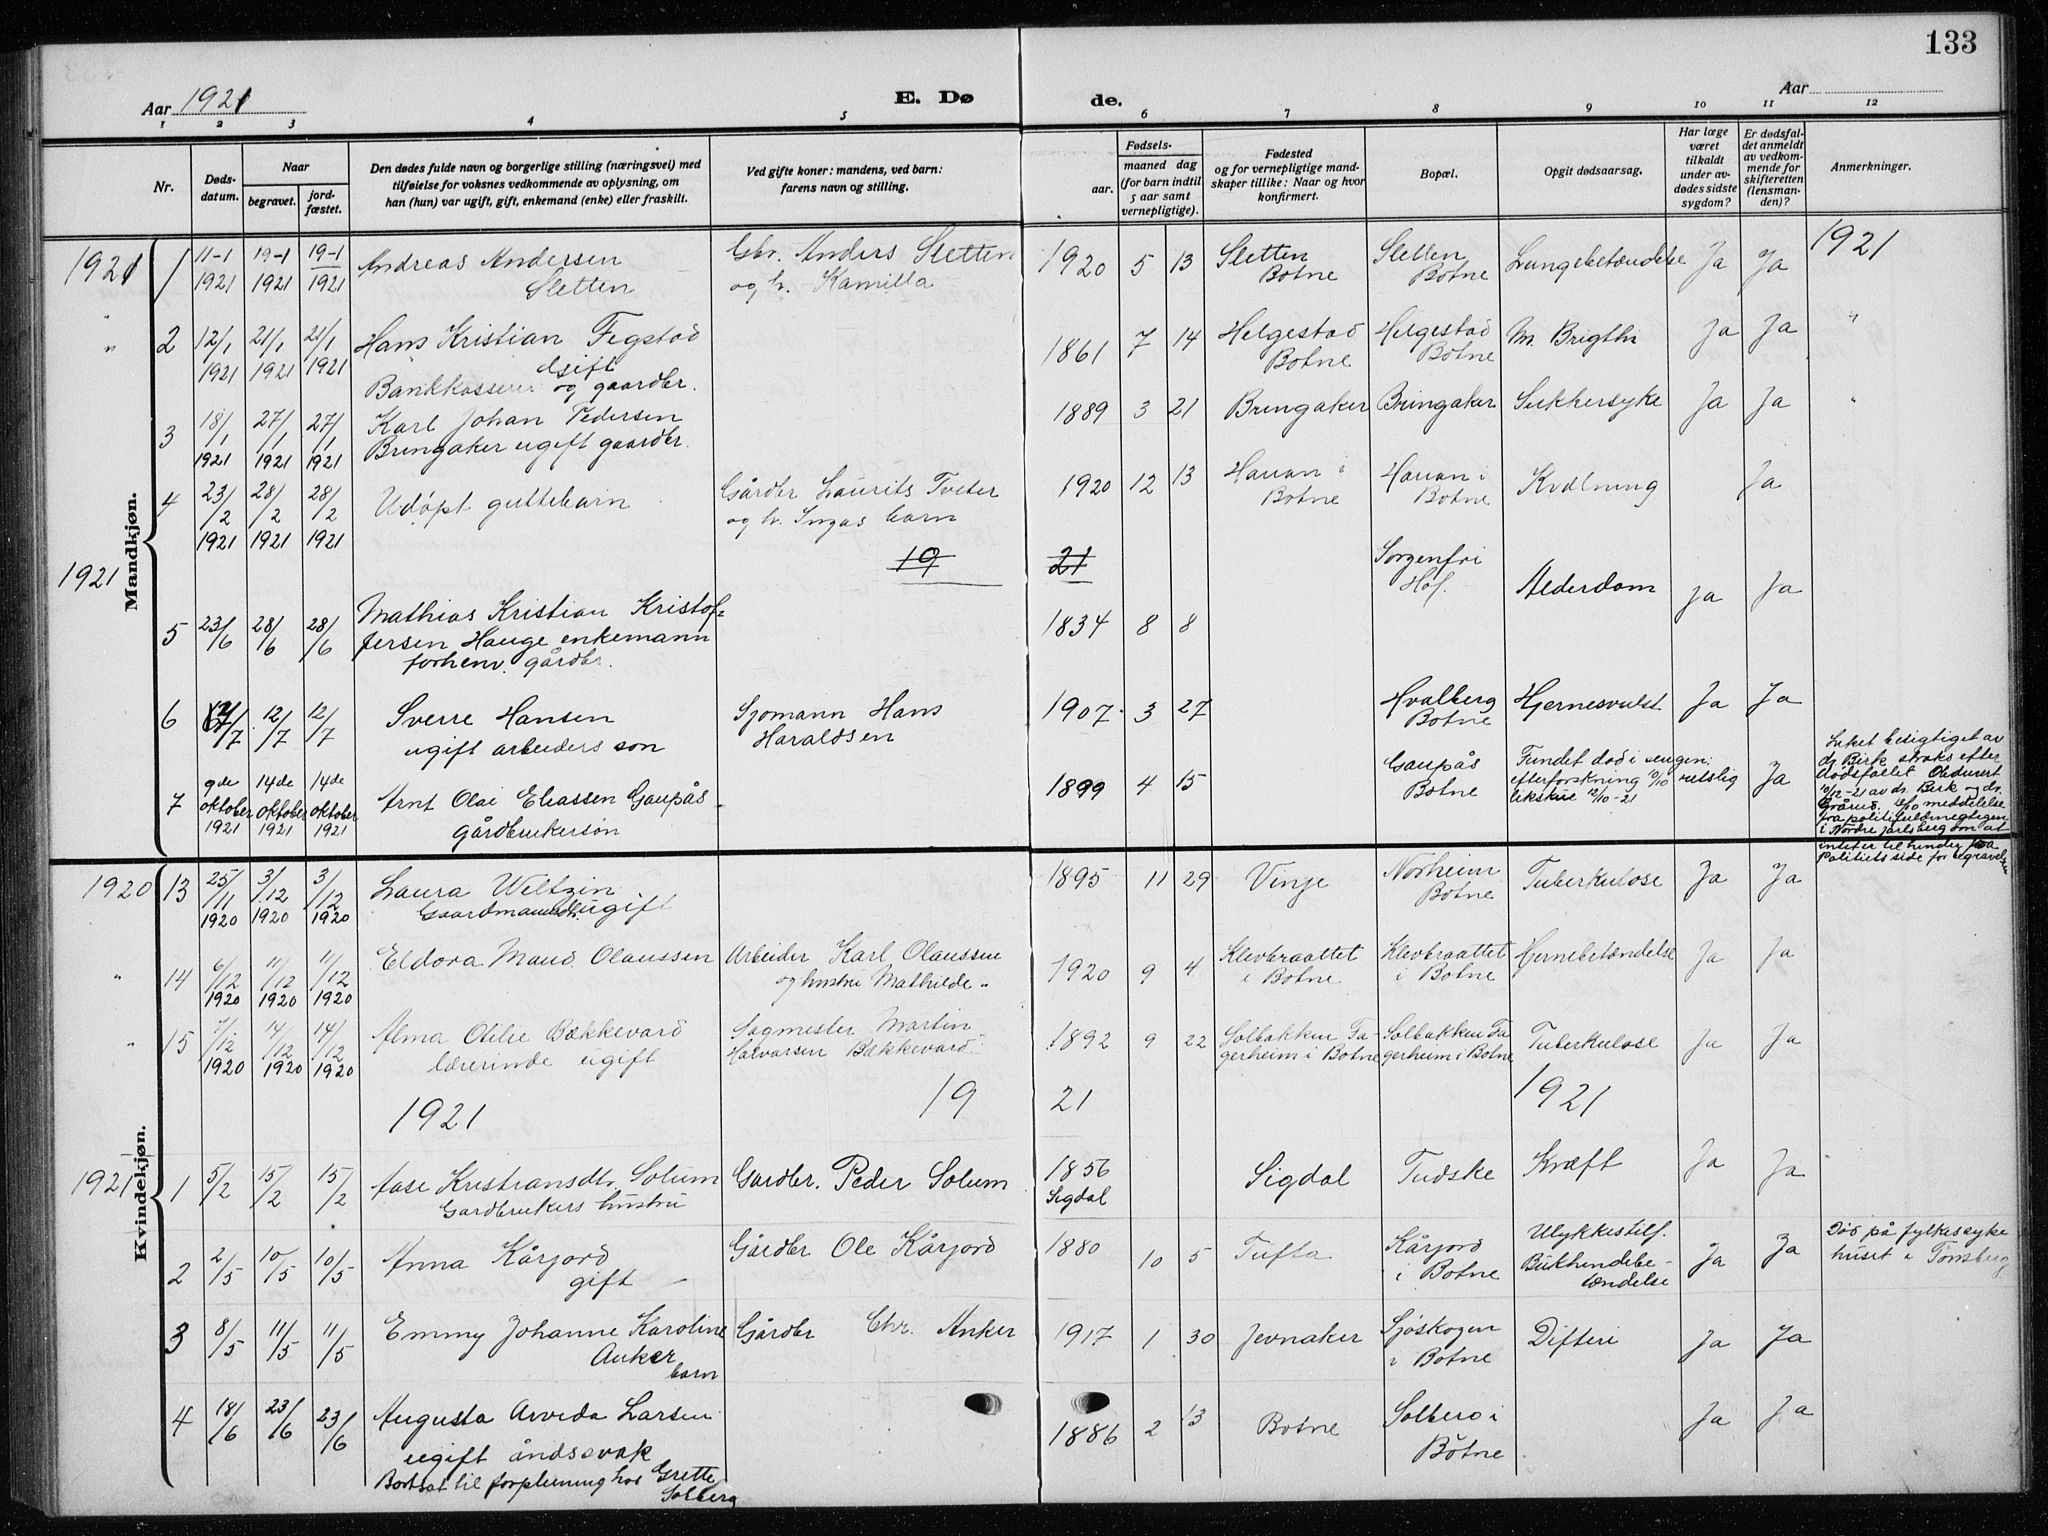 133
Aar 1921
E. Dø
de.
Aar
1 2 3 4 5 6 7 8 9 10 11 12
Nr.
Døds-
datum.
Naar
begravet.
jord-
fæstet.
Den dødes fulde navn og borgerlige stilling (næringsvei) med
tilføielse for voksnes vedkommende av oplysning, om
han (hun) var ugift, gift, enkemand (enke) eller fraskilt.
Ved gifte koner: mandens, ved barn:
farens navn og stilling.
Fødsels-
aar.
maaned dag
(for barn indtil
5 aar samt
vernepligtige).
Fødested
og for vernepligtige mand-
skaper tillike: Naar og hvor
konfirmert.
Bopæl.
Opgit dødsaarsag.
Har læge
været
tilkaldt
under av-
dødes sidste
sygdom?
Er dødsfal-
det anmeldt
av vedkom-
mende for
skifteretten
(lensman-
den)?
Anmerkninger.
Mandkjøn.
1921 1 11-1 1921 19-1 1921 19-1 1921 Andreas Andersen
Sletten
Gbr. Anders Sletten
og h. Kamilla
1920 5 13 Sletten
Botne
Sletten
Botne
Lungebetændelse Ja Ja 1921
" 2 12/1 1921 21/1 1921 21/1 1921 Hans Kristian Fegstad
Gift
Bankkasserer og gaardbr.
1861 7 14 Helgestad
Botne
Helgestad
Botne
M. Brigthi Ja Ja "
3 18/1 1921 27/1 1921 27/1 1921 Karl Johan Pedersen
Bringaker ugift gaardbr.
1889 3 21 Bringaker Bringaker Sukkersyke Ja Ja "
4 23/2 1921 28/2 1921 28/2 1921 Udøpt guttebarn
Gårdbr Laurits Tveter
og h. Ingas barn
1920 12 13 Hauan i
Botne
Hauan i
Botne
Kvælning Ja
19 21
1921 5 23/6 28/6 28/6 Mathias Kristian Kristof-
fersen Hauge enkemann
forhenv. gårdbr.
1834 8 8
Sorgenfri
Hof.
Alderdom ja Ja
6 12/7 12/7 Sverre Hansen
ugift arbeiders søn
Sjømann Hans
Haraldsen
1907 3 27 Hvalberg
Botne
Hjernesvulst Ja Ja
7 9de oktober 1921 14de oktober 1921 14de oktober 1921 Arnt Olai Eliassen Gaupås
gårdbrukersøn
1899 4 15 Gaupås
Botne
Fundet død i sengen;
efterforskning 10/10 retslig
likskue 12/10-21
Ja
Liket besigtiget av
dr. Birk straks efter
dødsfallet Obdusert
10/12-21 av dr. Birk og dr.
Grårud. 12/10 meddelelse
fra politifuldmegtigen
i Nordre Jarlsberg om at
intet er til hinder fra
Politiets side for begravelsen
Kvindekjøn.
1920 13 25/11 1920 3/12 1920 3/12 1920 Laura Weltzin
Gaardmandsdtr. ugift
1895 11 29 Vinje Norheim
Botne
Tuberkulose Ja Ja
" 14 6/12 1920 11/12 1920 11/12 1920 Eldora Maud Olaussen
Arbeider Karl Olaussen
og hustru Mathilde
1920 9 4 Klevbraattet
i Botne
Klevbraattet
i Botne
Hjernebetændelse Ja Ja
" 15 7/12 1920 14/12 1920 14/12 1920 Alma Otilie Bækkevard
lærerinde ugift
Sagmester Martin
Halvorsen Bækkevard
1892 9 22 Solbakken Fa-
gerheim i Botne
Solbakken Fa-
gerheim i Botne
Tuberkulose Ja Ja
1921 19 21 1921
1921 1 5/2 15/2 15/2 Aase Kristiansdtr. Solum
Gardbrukers hustru
Gardbr. Peder Solum
1856
Sigdal
Sigdal Tudske Kræft Ja Ja
2 2/5 10/5 10/5 Anna Kårjord
gift
Gårdbr Ole Kårjord
1880 10 5 Tufta Kårjord
i Botne
Ulykkestilf.
Bukhindebe-
tændelse
Ja Ja Død på fylkessyke
huset i Tønsberg
3 8/5 11/5 11/5 Emmy Johanne Karoline
Anker
barn
Gårdbr Chr. Anker
1917 1 30 Jevnaker Sjøskogen
i Botne
Difteri Ja Ja
4 18/6 23/6 23/6 Augusta Arvida Larsen
ugift åndssvak
Bortsat til forpleining hos Grette
Solberg
1886 2 13 Botne Solberg i
Botne
Ja Ja